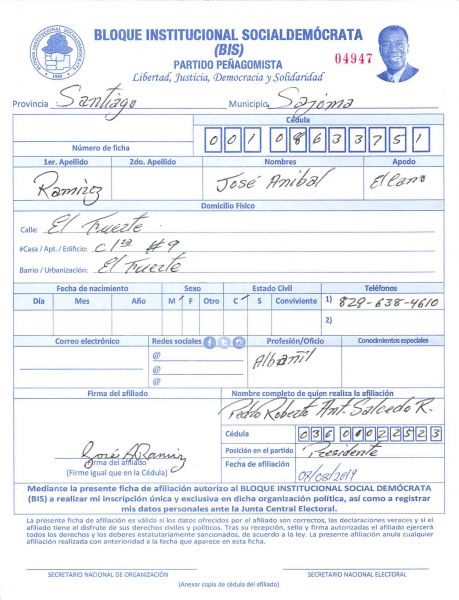 BLOQUE INSTITUCIONAL SOCIALDEMÓCRATA
(BIS)
04947
PARTIDO PEÑAGOMISTA
Libertad, Justicia, Democracia y Solidaridad
BLOQUE INSTITUCIONAL SOCIALDEMOCRATA
Provincia Santiago Municipio Sajoma
Cédula
Número de ficha 001 08633751
1er. Apellido 2do. Apellido Nombres Apodo
Ramirez José Anibal El Cano
Domicilio Físico
Calle: El Fuerte
#Casa / Apt. / Edificio: C 1ra #9
Barrio / Urbanización: El Fuerte
Fecha de nacimiento Sexo Estado Civil Teléfonos
Día Mes Año M F Otro C S Conviviente 1) 829-638-4610
2)
Correo electrónico Redes sociales Profesión/Oficio Conocimientos especiales
@ Albañil
@
@
Firma del afiliado Nombre completo de quien realiza la afiliación
Pedro Roberto Ant. Salcedo R.
Cédula 036 00022523
José A Ramirez Posición en el partido Presidente
Firma del afiliado Fecha de afiliación
(Firme igual que en la Cédula) 07/08/2019
Mediante la presente ficha de afiliación autorizo al BLOQUE INSTITUCIONAL SOCIAL DEMÓCRATA
(BIS) a realizar mi inscripción única y exclusiva en dicha organización política, así como a registrar
mis datos personales ante la Junta Central Electoral.
La presente ficha de afiliación es válida si los datos ofrecidos por el afiliado son correctos, las declaraciones veraces y si el
afiliado tiene el disfrute de sus derechos civiles y políticos. Tras su recepción, sello y firma autorizada el afiliado ejercerá
todos los derechos y los deberes estatutariamente sancionados, de acuerdo a la ley. La presente afiliación anula cualquier
afiliación realizada con anterioridad a la fecha que aparece en esta ficha.
SECRETARIO NACIONAL DE ORGANIZACIÓN SECRETARIO NACIONAL ELECTORAL
(Anexar copia de cédula del afiliado)